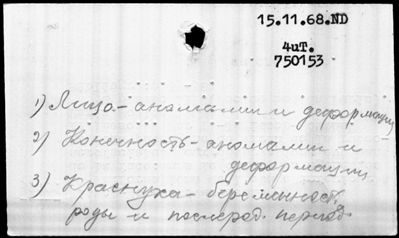 15.11.68.ND
4иТ.
750153
1) Лицо - аномалии и деформации
2) Конечность - аномалии и
деформации
3) Краснуха - беременност
роды и послерод. период.